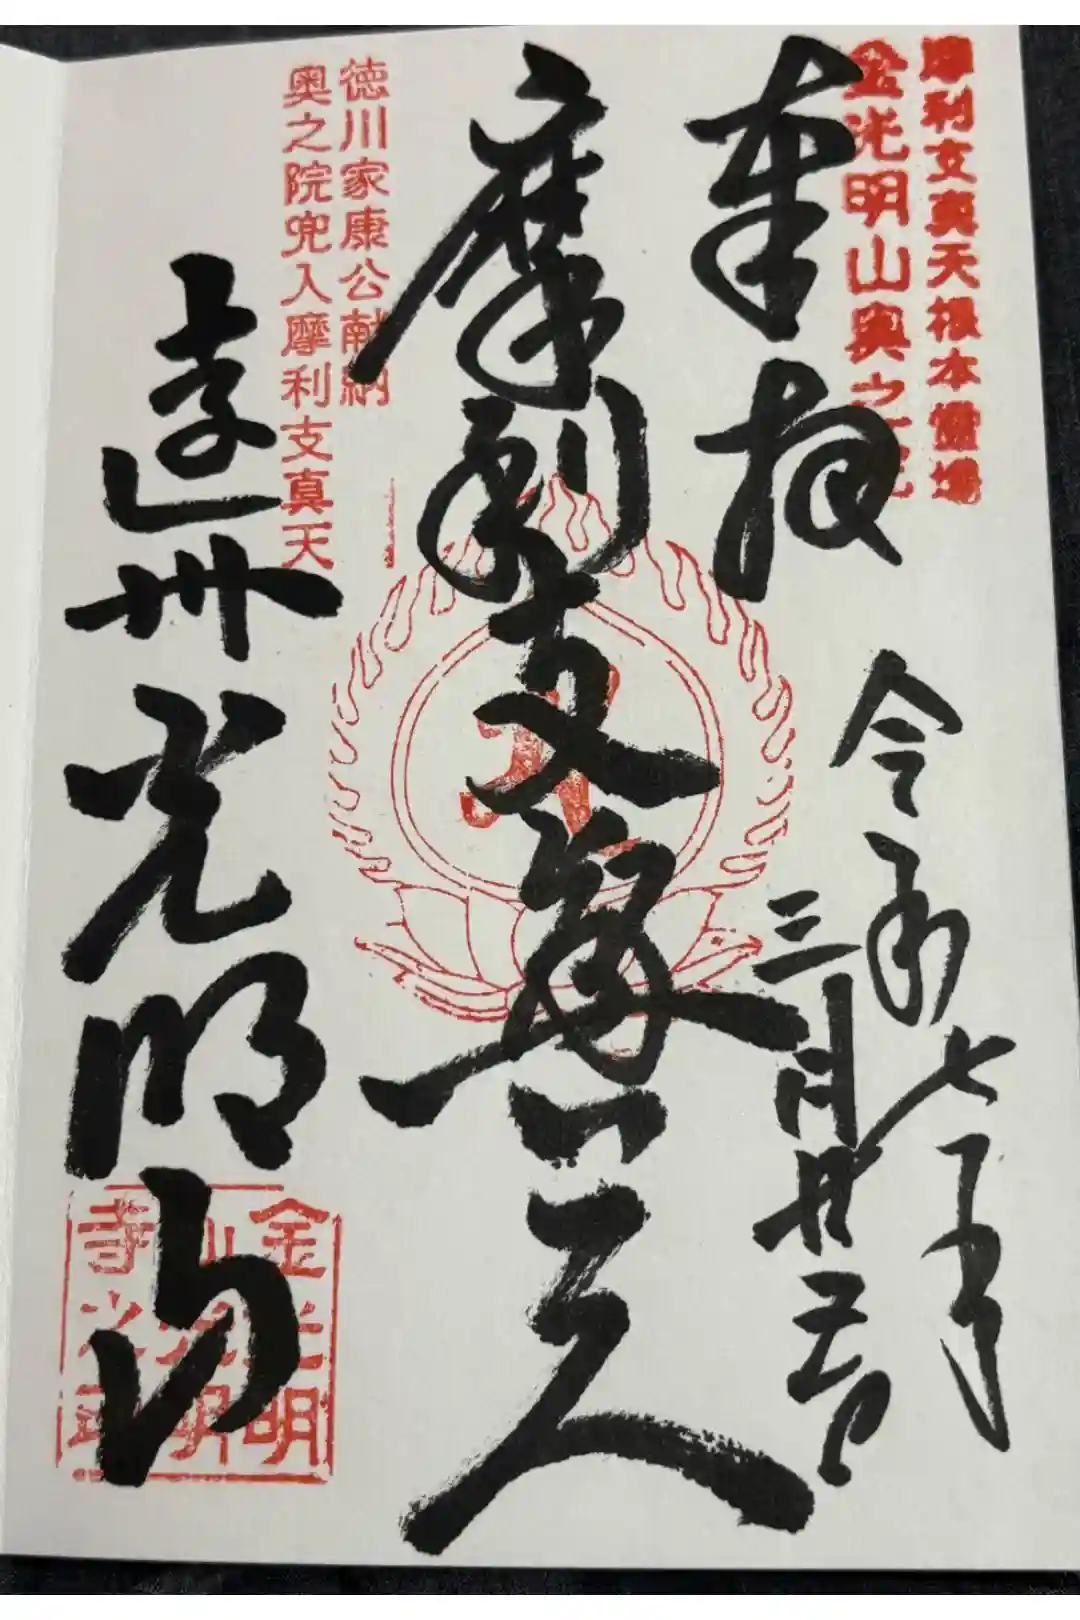 摩利支真天根本霊場
金光明山奥之院
奉拝
令和七年
三月廿五日
摩利支真天
徳川家康公献納
奥之院兜入摩利支真天
遠州光明山
金光明
山光明
寺光